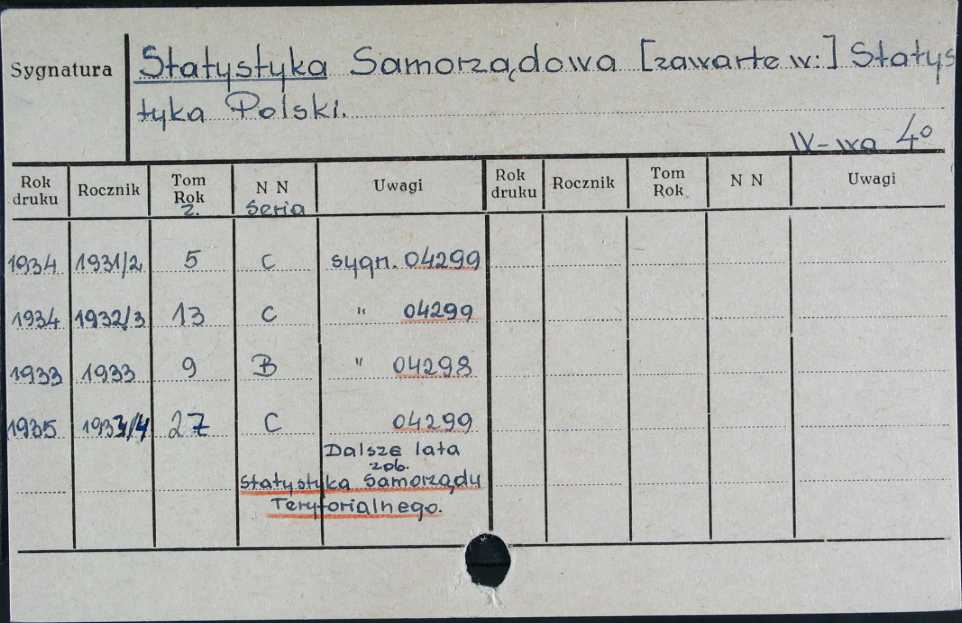 Sygnatura Statystyka Samorządowa [zawarte w:] Statys
tyka Polski.
W-wa 4º
Rok druku Rocznik Tom Rok z. N N Seria Uwagi Rok druku Rocznik Tom Rok N N Uwagi
1934 1931/2 5 C sygn. 04299
1934 1932/3 13 C " 04299
1933 1933 9 B " 04298
1935 1933/4 27 C 04299
Dalsze lata
zob.
Statystyka Samorządu
Terytorialnego.